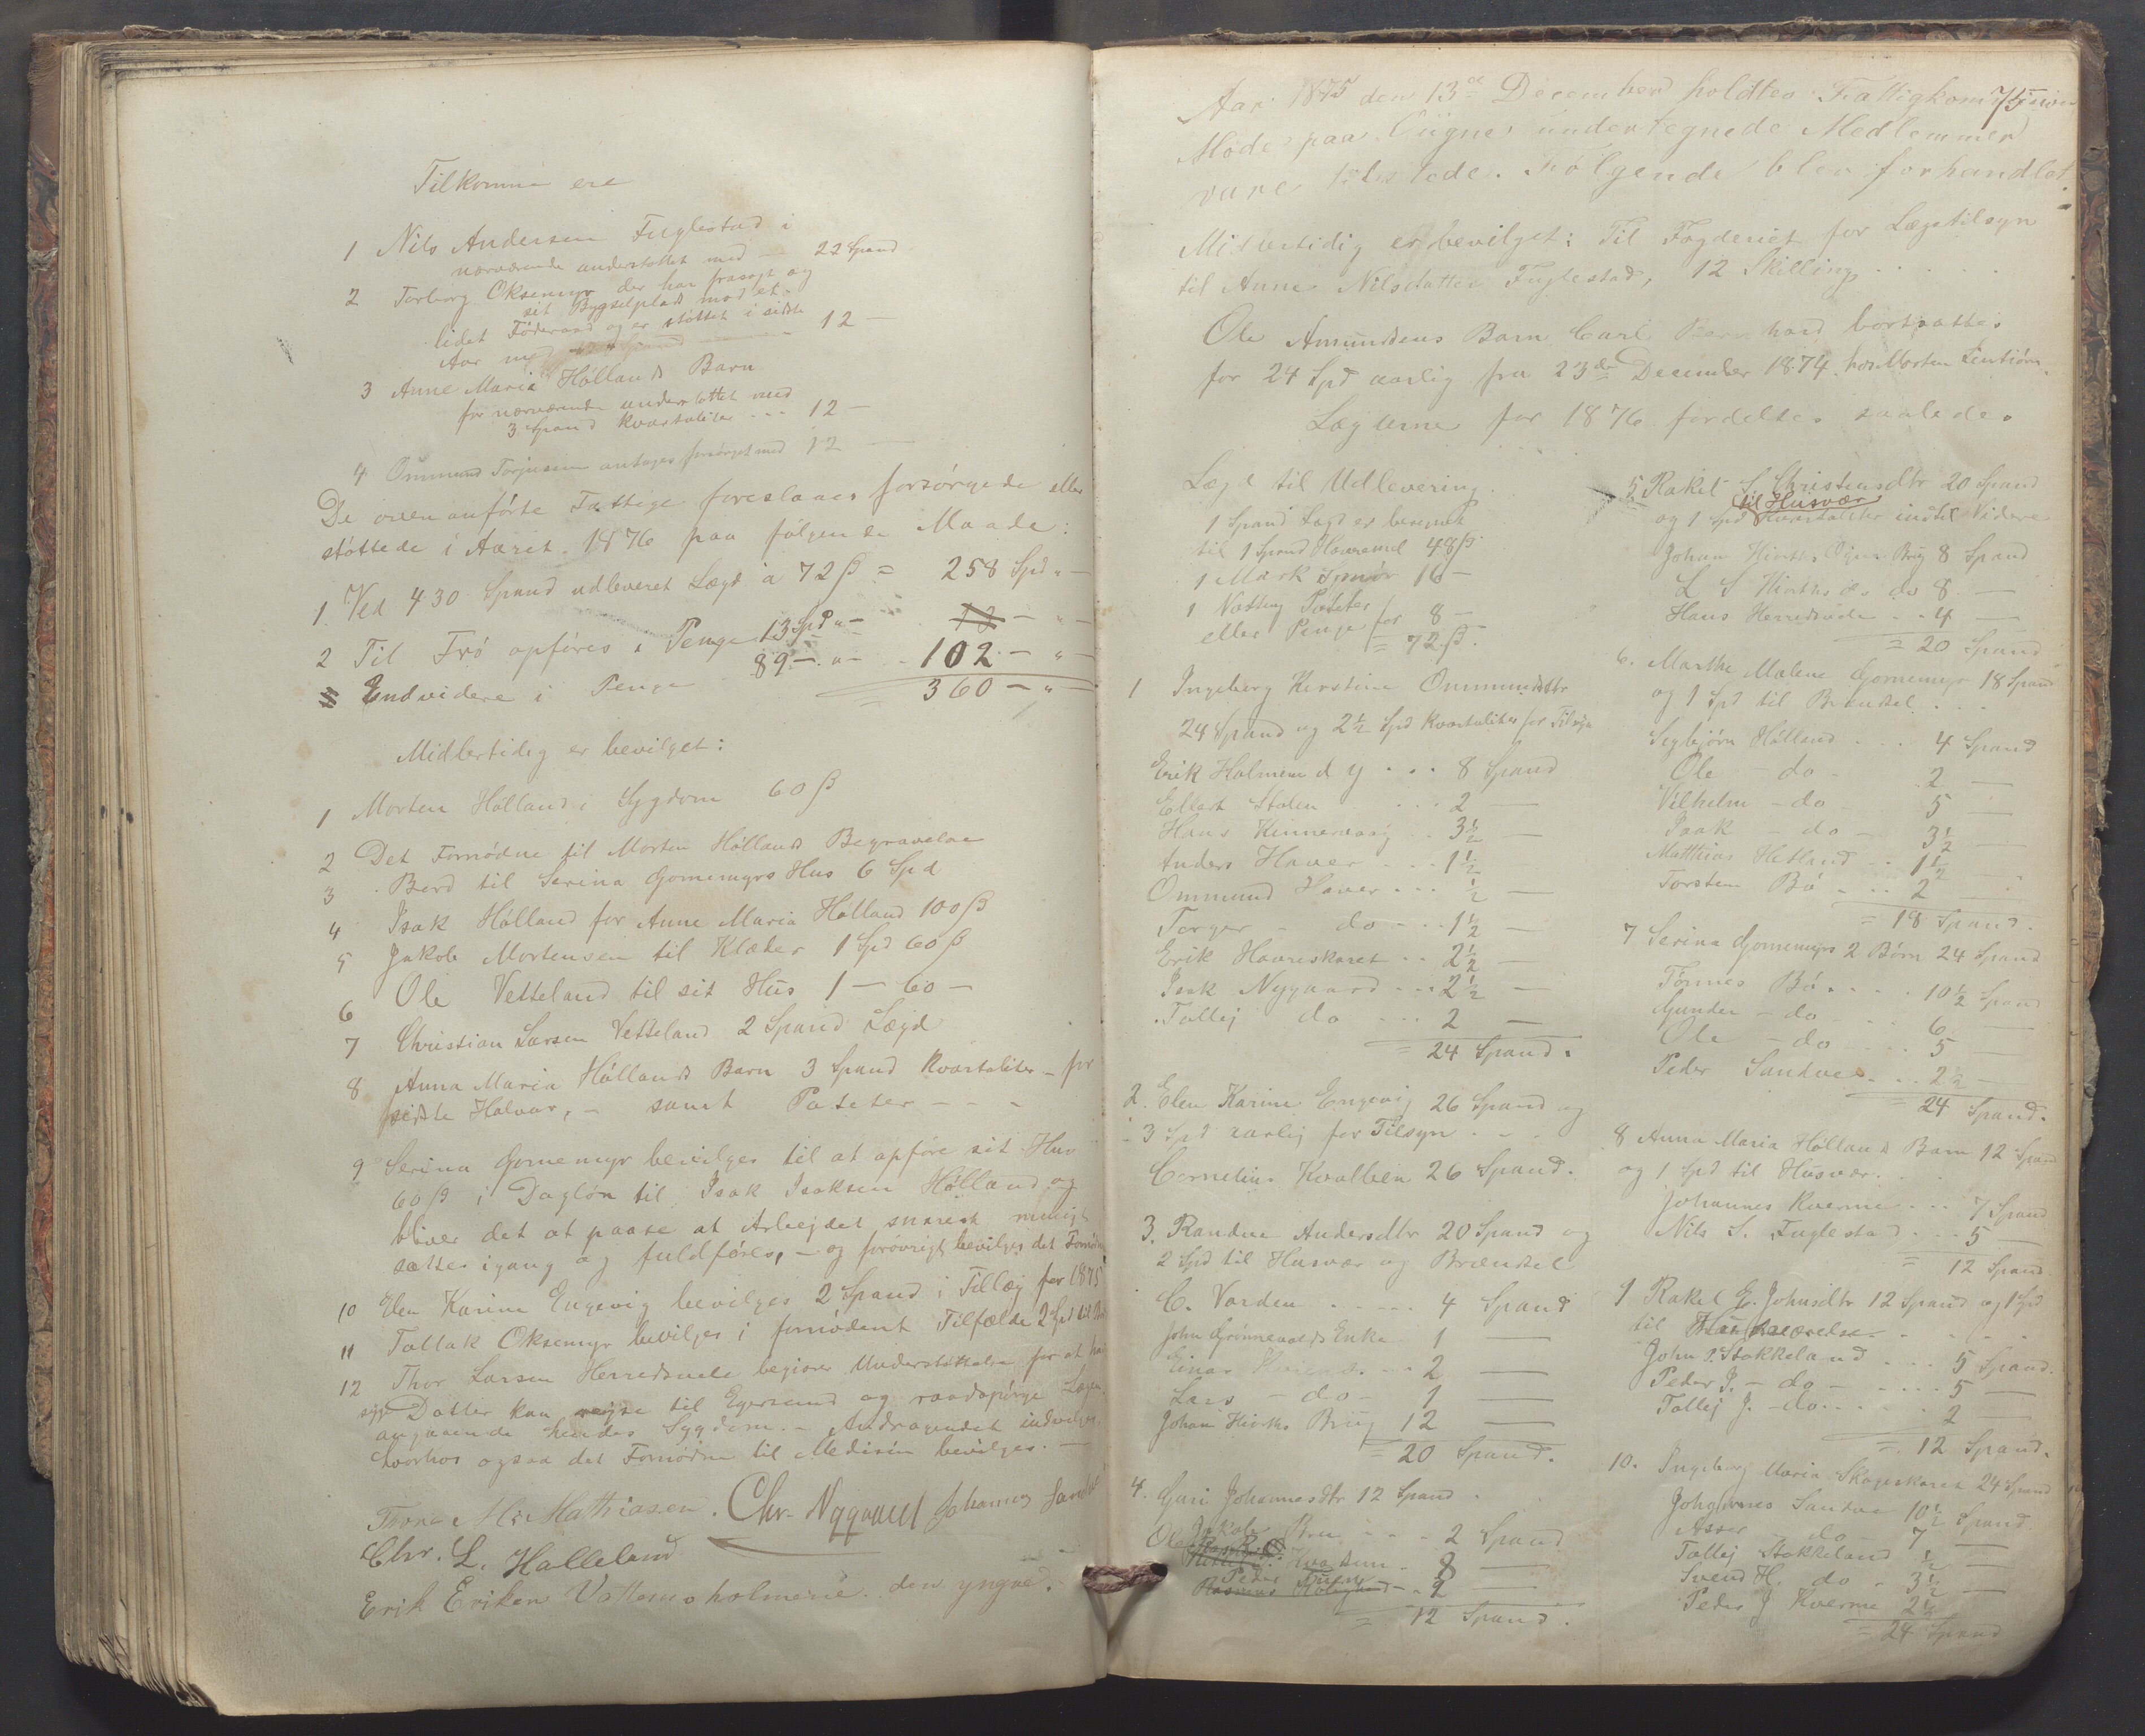 Tilkomne ere
1 Nils Andersen Fuglestad i
nærværende understøttet med — 22 Spand
2 Torborg Oksemyr der har frasagt og
sit Bygselplads mod et
lidet Føderaad og er støttet i sidste
Aar med 12 —
3 Anne Maria Hølland's Barn
for nærværende understøttet med
3 Spand Kvartaliter - - - 12 —
4 Ommund Torjusen antages forsørget med 12 —
De ovenanførte Fattige foreslaaes forsørgede eller
støttede i Aaret 1876 paa følgende Maade:
1. Ved 430 Spand udleveret Lægd a 72 ß = 258 Spd „ —
2 Til Frö opføres i Penge 13 Spd „ — 13 — „ —
Endvidere i Penge 89 — „ — 102 — „ —
= 360 — „ —
Midlertidig er bevilget:
1 Morten Hølland i Sygdom 60 ß
2 Det Fornødne til Morten Høllands Begravelse
3 Bord til Serina Gomemyrs Hus 6 Spd
4 Isak Hølland for Anne Maria Hølland 100 ß
5 Jakob Mortensen til Klæder 1 Spd 60 ß
6 Ole Vetteland til sit Hus 1 — 60 —
7 Christian Larsen Vetteland 2 Spand Lægd
8 Anna Maria Høllands Barn 3 Spand Kvartaliter — for
sidste Halvaar, — samt Poteter - - -
9 Serina Gomemyr bevilges til at opføre sit Hus
60 ß i Dagløn til Isak Isaksen Hølland og
bliver det at paase at Arbejdet snarest muligt
sættes igang og fuldføres, — og forøvrigt bevilges det Fornødne
10 Elen Karine Engevig bevilges 2 Spand i Tillæg for 1875
11 Tollak Oksemyr bevilges i fornødent Tilfælde 2 Spd til
12 Thor Larsen Herredsvele begjærer Understøttelse for at hans
syge Datter kan rejse til Egersund og raadspørge Lægen
angaaende hendes Sygdom. — Andragendet indvilges
hvorhos ogsaa det Fornødne til Medisin bevilges. —
Thore M. Mathiasen. Chr. Nygaard Johannes Sandve
Chr. L. Halleland
Erik Eriksen Vattemoholmene den yngre.
75
Aar 1875 den 13de December holdtes Fattigkommissions
Møde paa Øiigne undertegnede Medlemmer
vare tilstede. Følgende blev forhandlet.
Midlertidig er bevilget: Til Fogderiet for Lægetilsyn
til Anne Nilsdatter Fuglestad, 12 Skilling
Ole Amundsens Barn Carl hard bortsattes
for 24 Spd aarlig fra 23de December 1874. hos Morten Lentiörn.
Lægderne for 1876 fordeltes saaledes
Lægd til Udlevering.
1 Spand Lægd er beregnet
til 1 Spand Havremel 48 ß
1 Mark Smør 16 —
1 Nætting Poteter
eller Penge for 8 —
= 72 ß.
1 Ingeborg Kirstine Ommundsdtr
24 Spand og 2½ Spd Kvartaliter for Tilsyn
Erik Holmene d y . . . 8 Spand
Ellert Stolen . . . 2 —
Hans Kinnervaag . . 3½ —
Anders Haver . . . 1½
Ommund Haver . . . ½ —
Torger — do . . . 1½ —
Erik Haareskaret . . 2½ —
Isak Nygaard . . . 2½ —
Tollej do . . . 2 —
= 24 Spand.
2. Elen Karine Engevig 26 Spand og
3 Spd aarlig for Tilsyn . .
Cornelius Kvalbein 26 Spand.
3. Randve Andersdtr 20 Spand og
2 Spd til Husvær og Brændsel
C. Varden . . . . . 4 Spand
John Grønnevolds Enke 1 —
Einar . . . 2 —
Lars — do — 1 —
Johan Hiorths Brug 12 —
= 20 Spand.
4. Guri Johannesdtr 12 Spand .
Ole Jakob Bru . . . 2 Spand
Kvasum . 8 —
Peder
Rasmus . . 2 —
= 12 Spand.
5 Rakel S Christensdtr 20 Spand
til Husvær
og 1 Spd Kvartaliter indtil Videre
Johan Hiorths Ogna Brug 8 Spand
L S Hiorths do do 8 —
Hans Herredsvele . . 4 —
= 20 Spand
6. Marthe Malene Gomemyr 18 Spand
og 1 Spd til Brændsel . . .
Segbjørn Hølland . . . 4 Spand
Ole — do — 2 —
Vilhelm — do 5 —
Isak — do — 3½ —
Matthias Hetland . . 1½ —
Torsten Bö . . . 2 —
= 18 Spand.
7 Serina Gomemyrs 2 Børn 24 Spand
Tønnes Bö . . . . 10½ Spand
Gunder — do — . . 6 —
Ole — do — 5 —
Peder Sandve . . . 2½ —
= 24 Spand.
8 Anna Maria Høllands Barn 12 Spand
og 1 Spd til Husvær . . .
Johannes Kverme . . . 7 Spand
Nils S. Fuglestad . . . 5 —
= 12 Spand
9 Rakel E. Johnsdtr 12 Spand og 1 Spd
til Husværelse . . . .
John P. Stokkeland . . . 5 Spand.
Peder J. — do — . . . . 5 —
Tollej J. — do . . . . . 2 —
= 12 Spand.
10. Ingeborg Maria Skogeskaret 24 Spand
Johannes Sandve 10½ Spand
Asser — do — 7 —
Tollej Stokkeland ½ —
Svend H. do . 3½ —
Peder J Kverme 2½
= 24 Spand